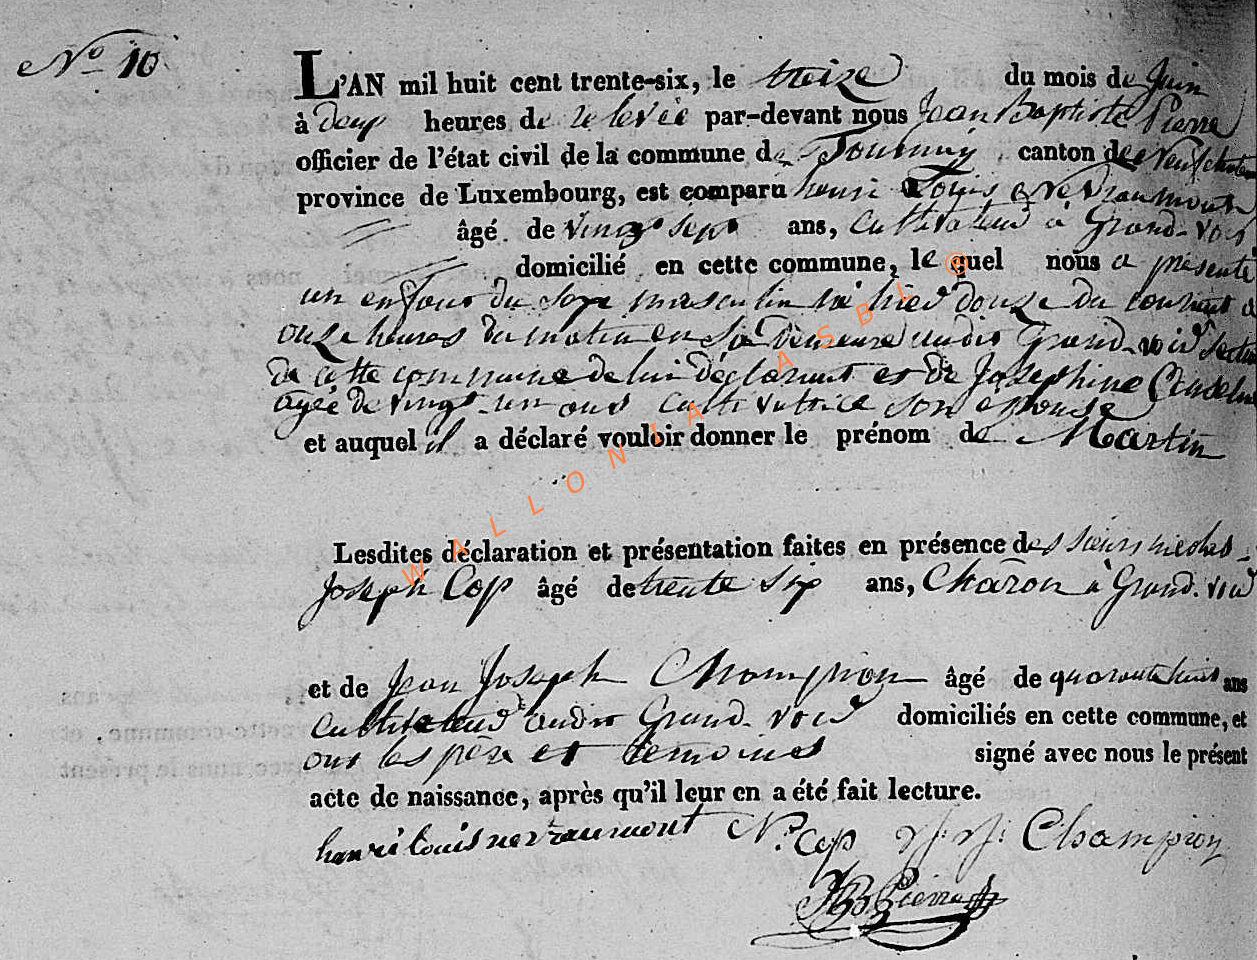 No 10
L'AN mil huit cent trente-six, le treize du mois de Juin
à deux heures de relevée par-devant nous Jean Baptiste Pierre
officier de l'état civil de la commune de Tournay canton de Neufchateau
province de Luxembourg, est comparu henri Louis Nevraumont
âgé de vingt sept ans, cultivateur à Grand-voir
domicilié en cette commune, lequel nous a présenté
un enfant du sexe masculin né hier douze du courant à
onze heures du matin en sa demeure audit Grand-voir section
de cette commune de lui déclarant et de Josephine
agée de vingt-un ans cultivatrice son épouse
et auquel il a déclaré vouloir donner le prénom de Martin
Lesdites déclaration et présentation faites en présence des sieurs nicolas
Joseph Cop âgé de trente six ans, Charon à Grand-voir
et de Jean Joseph Champion âgé de quarante huit ans
cultivateur audit Grand-voir domiciliés en cette commune, et
ont les père et temoins signé avec nous le présent
acte de naissance, après qu'il leur en a été fait lecture.
henri louis nevraumont N. Cop J. J. Champion
JB Pierre
WALLONIA ASBL ©